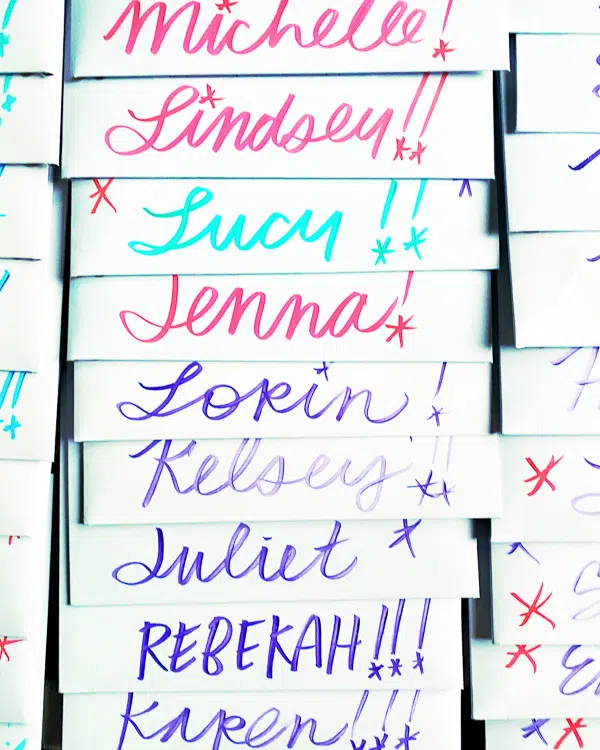 Michelle!
Lindsey!!
Lucy!!
Jenna!
Lorin!
Kelsey!!
Juliet
REBEKAH!!!
Karen!!!